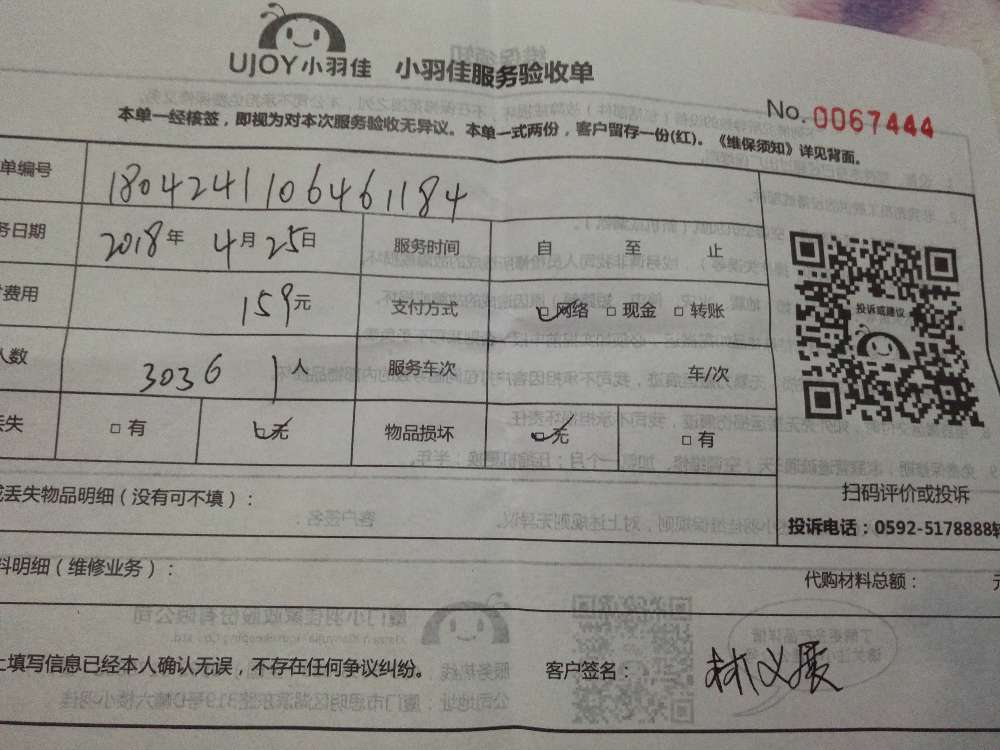 UJOY小羽佳 小羽佳服务验收单
No. 0067444
本单一经核签，即视为对本次服务验收无异议。本单一式两份，客户留存一份(红)。《维保须知》详见背面。
单编号 1804241106461184
务日期 2018年 4月25日 服务时间 自 至 止
费用 159元 支付方式 网络 现金 转账
投诉或建议
人数 3036 1人 服务车次 车/次
丢失 有 无 物品损坏 无 有
或丢失物品明细（没有可不填）：
扫码评价或投诉
投诉电话：0592-5178888转
料明细（维修业务）： 代购材料总额： 元
上填写信息已经本人确认无误，不存在任何争议纠纷。 客户签名：